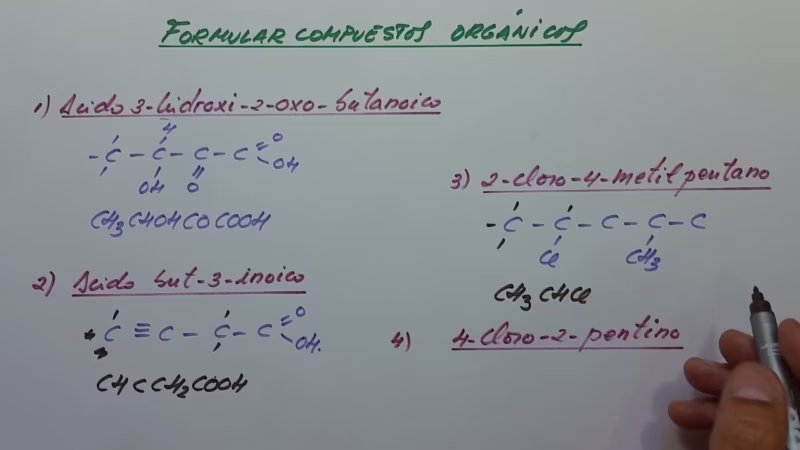 FORMULAR COMPUESTOS ORGÁNICOS
1) Acido 3-hidroxi-2-oxo-butanoico
H
- C - C - C - C = O
OH O OH
CH3CHOHCOCOOH
2) Acido but-3-inoico
C ≡ C - C - C = O
OH.
CH C CH2COOH
3) 2-cloro-4-metilpentano
- C - C - C - C - C
Cl CH3
CH3 CHCl
4) 4-cloro-2-pentino